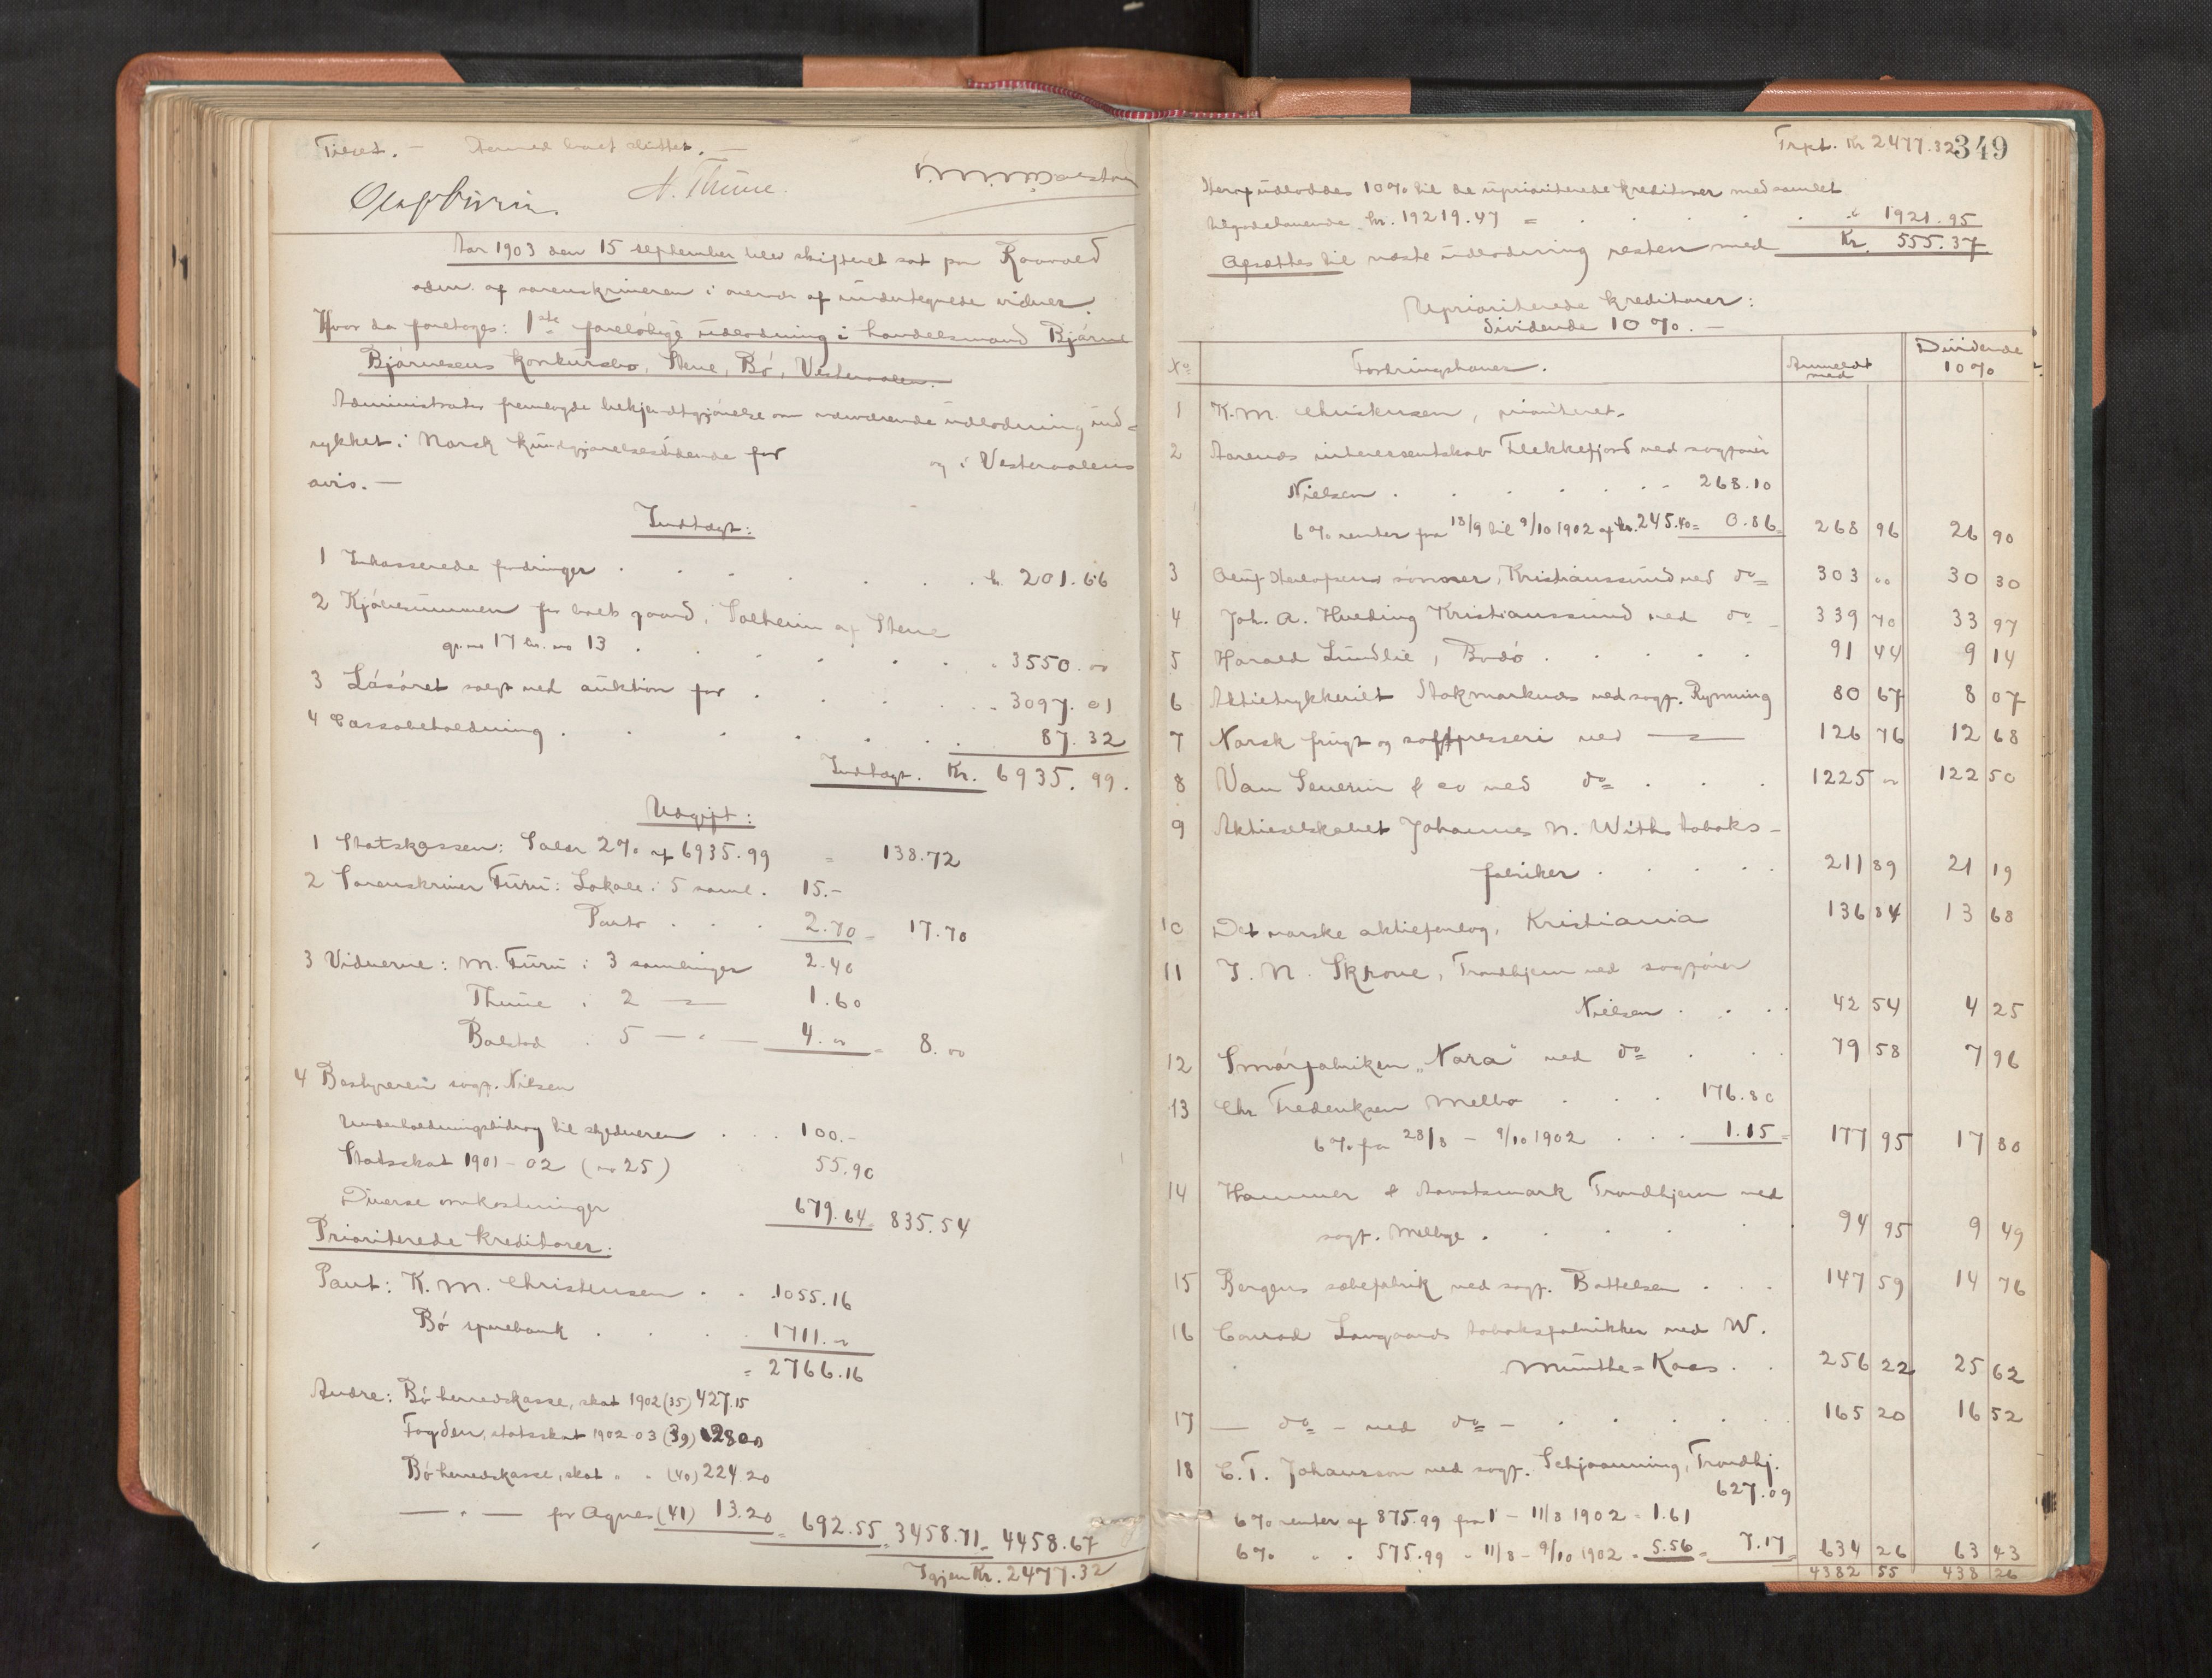 Tilset. — Dermed boet sluttet. —
N. Thiue.
Aar 1903 den 15 september blev skifteret sat paa Raavold
adm. af sorenskriveren i overvær af undertegnede vidner.
Hvor da foretoges: 1ste foreløbige udlodning i handelsmand Bjarne
Bjørnsens konkursbo, Stene, Bø, Vesteraalen.
Administrator fremlagde bekjendtgjørelse om nærværende udlodning ind=
rykket i Norsk kundgjørelsestidende for og i Vesteraalens
avis. —
Indtægt:
1 Inkasserede fordringer . . . . . . . kr. 201.66
2 Kjøbesummen for boets gaard, Solheim af Stene
gr. no 17 br. no 13 . . . . . . . 3550.00
3 Løsøret solgt ved auktion for . . . . . 3097.01
4 Cassabeholdning . . . . . . 87.32
Indtægt. Kr. 6935.99.
Udgift:
1 Statskassen: Salær 2% af 6935.99 = 138.72
2 Sorenskriver Furu: Lokale i 5 saml. 15.-
Porto . . . 2.70 = 17.70
3 Vidnerne: M. Furu i 3 samlinger 2.40
Thiue i 2 — " — 1.60
Balstad i 5 — " — 4.00 = 8.00
4 Bestyreren sagf. Nilsen
Underholdningsbidrag til skyldneren . . . 100.-
Statsskat 1901-02 (no 25) 55.90
Diverse omkostninger 679.64 = 835.54
Prioriterede kreditorer.
Pant: K. M. Christensen . . 1055.16
Bø sparebank . . . . 1711.00
= 2766.16
Andre: Bø herredskasse, skat 1902 (35) 427.15
Fogden, statsskat 1902-03 (39) 28.00
Bø herredskasse, skat " " (40) 224.20
— " — for Agnes (41) 13.20 = 692.55 = 3458.71 = 4458.67
Igjen Kr. 2477.32
Trpt. Kr 2477.32 349
Heraf udloddes 10% til de uprioriterede kreditorer med samlet
tilgodehavende kr. 19219.47 = . . . . . " 1921.95
Afsættes til næste udlodning resten med Kr. 555.37
Uprioriterede kreditorer:
Dividende 10%. —
No Fordringshaver. Anmeldt med Dividende 10%
1 K. M. Christensen, prioriteret.
2 Aarenæs interessentskab Flekkefjord ved sagfører
Nielsen . . . . . . . 268.10
6% renter fra 18/9 til 9/10 1902 af kr. 245.40 = 0.86 = 268 96 26 90
3 Oluf Herlofsens sønner, Kristianssund ved do 303 00 30 30
4 Joh. A. Hvelding Kristianssund ved do 339 70 33 97
5 Harald Lundlie, Bodø . . . . . 91 44 9 14
6 Aktietrykkeriet Stokmarknæs ved sagf. Rynning 80 67 8 07
7 Norsk frugt og saftpresseri ved — " — 126 76 12 68
8 Van Severin & co ved do . . . 1225 00 122 50
9 Aktieselskabet Johannes N. Withs tobaks-
fabriker . . . . . 211 89 21 19
10 Det norske aktieforlag, Kristiania 136 84 13 68
11 J. N. Skrove, Trondhjem ved sagfører
Nielsen . . . . 42 54 4 25
12 Smørfabriken „Nora" ved do . . . 79 58 7 96
13 Chr. Frederiksen Melbo . . . 176.80
6% fra 28/8 - 9/10 1902 . . . 1.15 = 177 95 17 80
14 Hammer & Aavatsmark Trondhjem ved
sagf. Melbye . . . . . . 94 95 9 49
15 Bergens sæbefabrik ved sagf. Bottelsen . . . 147 59 14 76
16 Conrad Langaards tobaksfabrikker ved W.
Münthe=Kaas . . 256 22 25 62
17 — do - ved do - . . . . . 165 20 16 52
18 C. T. Johansson ved sagf. Schjaanning, Trondhj.
627.09
6% renter af 875.99 fra 1 - 11/8 1902 = 1.61
6% " " 575.99 " 11/8 - 9/10 1902 = 5.56 = 7.17 = 634 26 63 43
4382 55 438 26